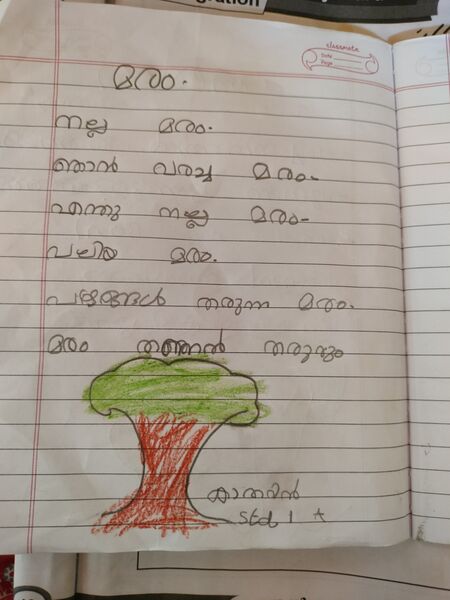 gration
classmate
Date
Page
മരം.
നല്ല മരം.
ഞാൻ വരച്ച മരം.
എന്തു നല്ല മരം.
വലിയ മരം.
പഴങ്ങൾ തരുന്ന മരം.
മരം തണൽ തരും
കാതറിൻ
Std 1 A